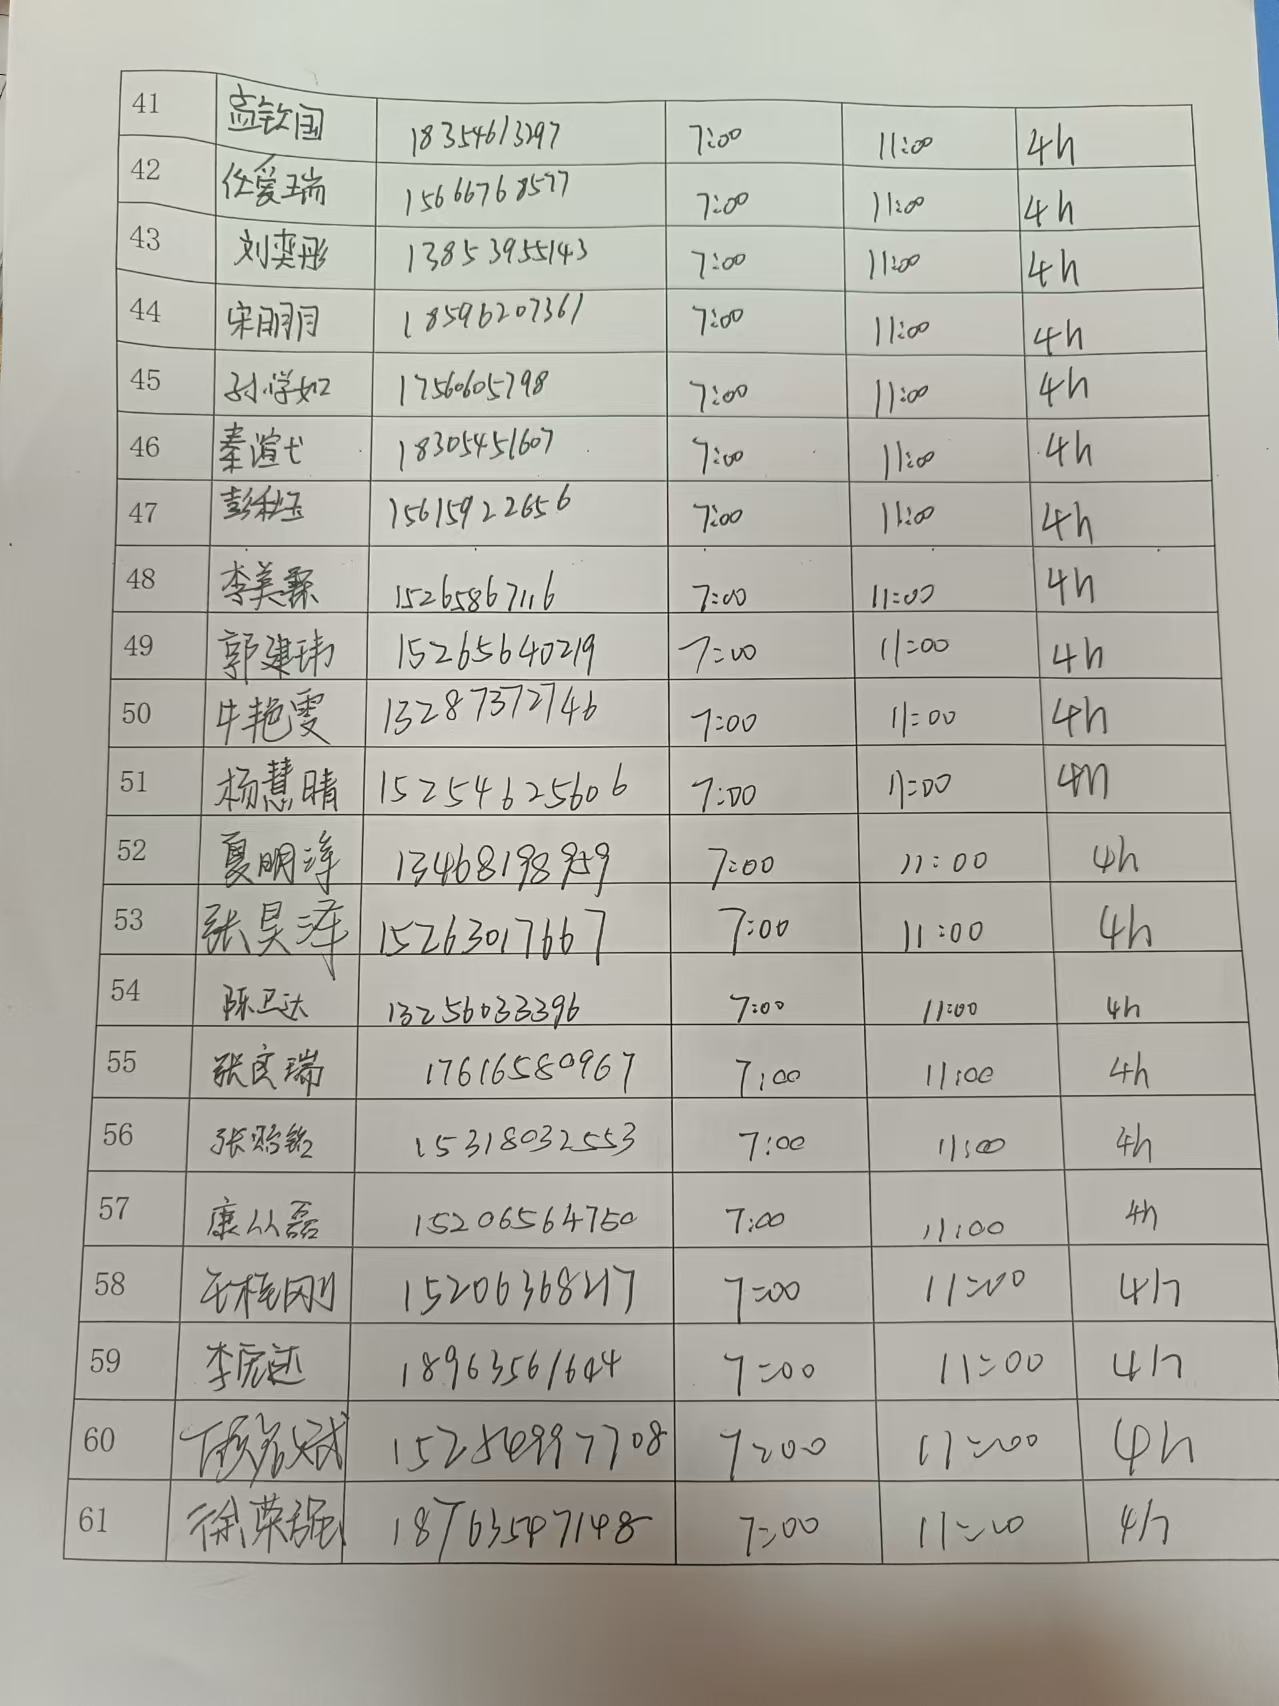 41 孟钦国 18354613297 7:00 11:00 4h
42 任爱瑞 15666768577 7:00 11:00 4h
43 刘奕彤 13853955143 7:00 11:00 4h
44 宋明月 18596207361 7:00 11:00 4h
45 孙学如 17560605798 7:00 11:00 4h
46 秦渲弋 18305451607 7:00 11:00 4h
47 彭秋玉 15615922656 7:00 11:00 4h
48 李美霖 15265867116 7:00 11:00 4h
49 郭建玮 15265640219 7:00 11:00 4h
50 牛艳雯 13287372746 7:00 11:00 4h
51 杨慧晴 15254625606 7:00 11:00 4h
52 夏明泽 13468198959 7:00 11:00 4h
53 张昊泽 15263017667 7:00 11:00 4h
54 陈卫达 13256033396 7:00 11:00 4h
55 张庆瑞 17616580967 7:00 11:00 4h
56 15318032553 7:00 11:00 4h
57 康从磊 15206564750 7:00 11:00 4h
58 7:00 11:00 4h
59 18963561644 7:00 11:00 4h
60 15254997708 7:00 11:00 4h
61 徐荣强 18763547148 7:00 11:00 4h